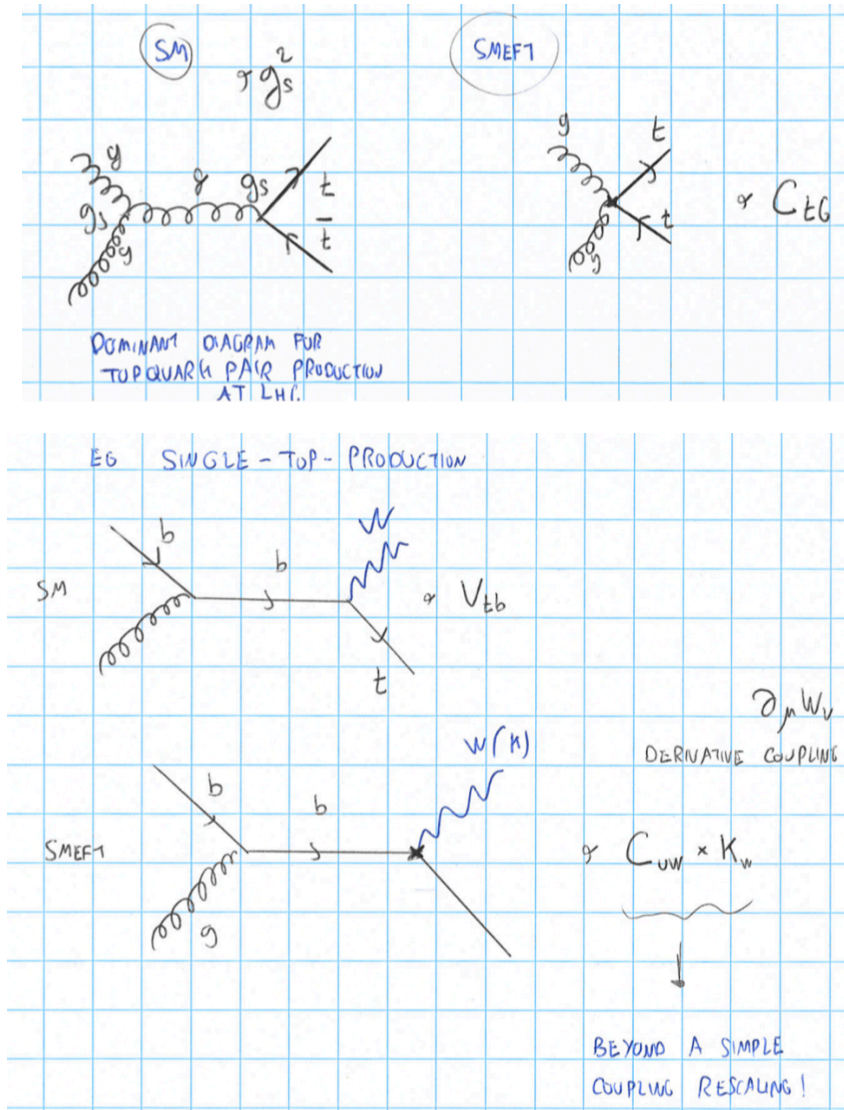 SM
∝ g_s^2
SMEFT
g
g
g_s
g_s
g
t
t̄
g
t
t
g
∝ C_tG
DOMINANT DIAGRAM FOR
TOP QUARK PAIR PRODUCTION
AT LHC
EG SINGLE-TOP-PRODUCTION
SM
b
b
W
t
∝ V_tb
∂_μ W_ν
DERIVATIVE COUPLING
SMEFT
b
g
b
W(K)
∝ C_uW × K_W
BEYOND A SIMPLE
COUPLING RESCALING!